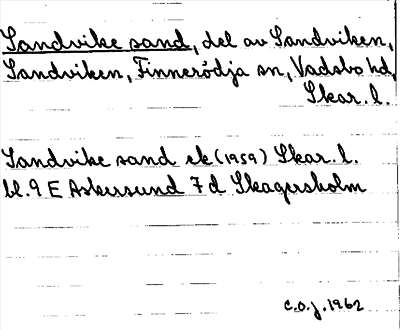 Sandvike sand, del av Sandviken,
Sandviken, Finnerödja sn, Vadsbo hd,
Skar. l.
Sandvike sand ek (1959) Skar. l.
bl. 9 E Askersund 7 d Skagersholm
C.O.J. 1962